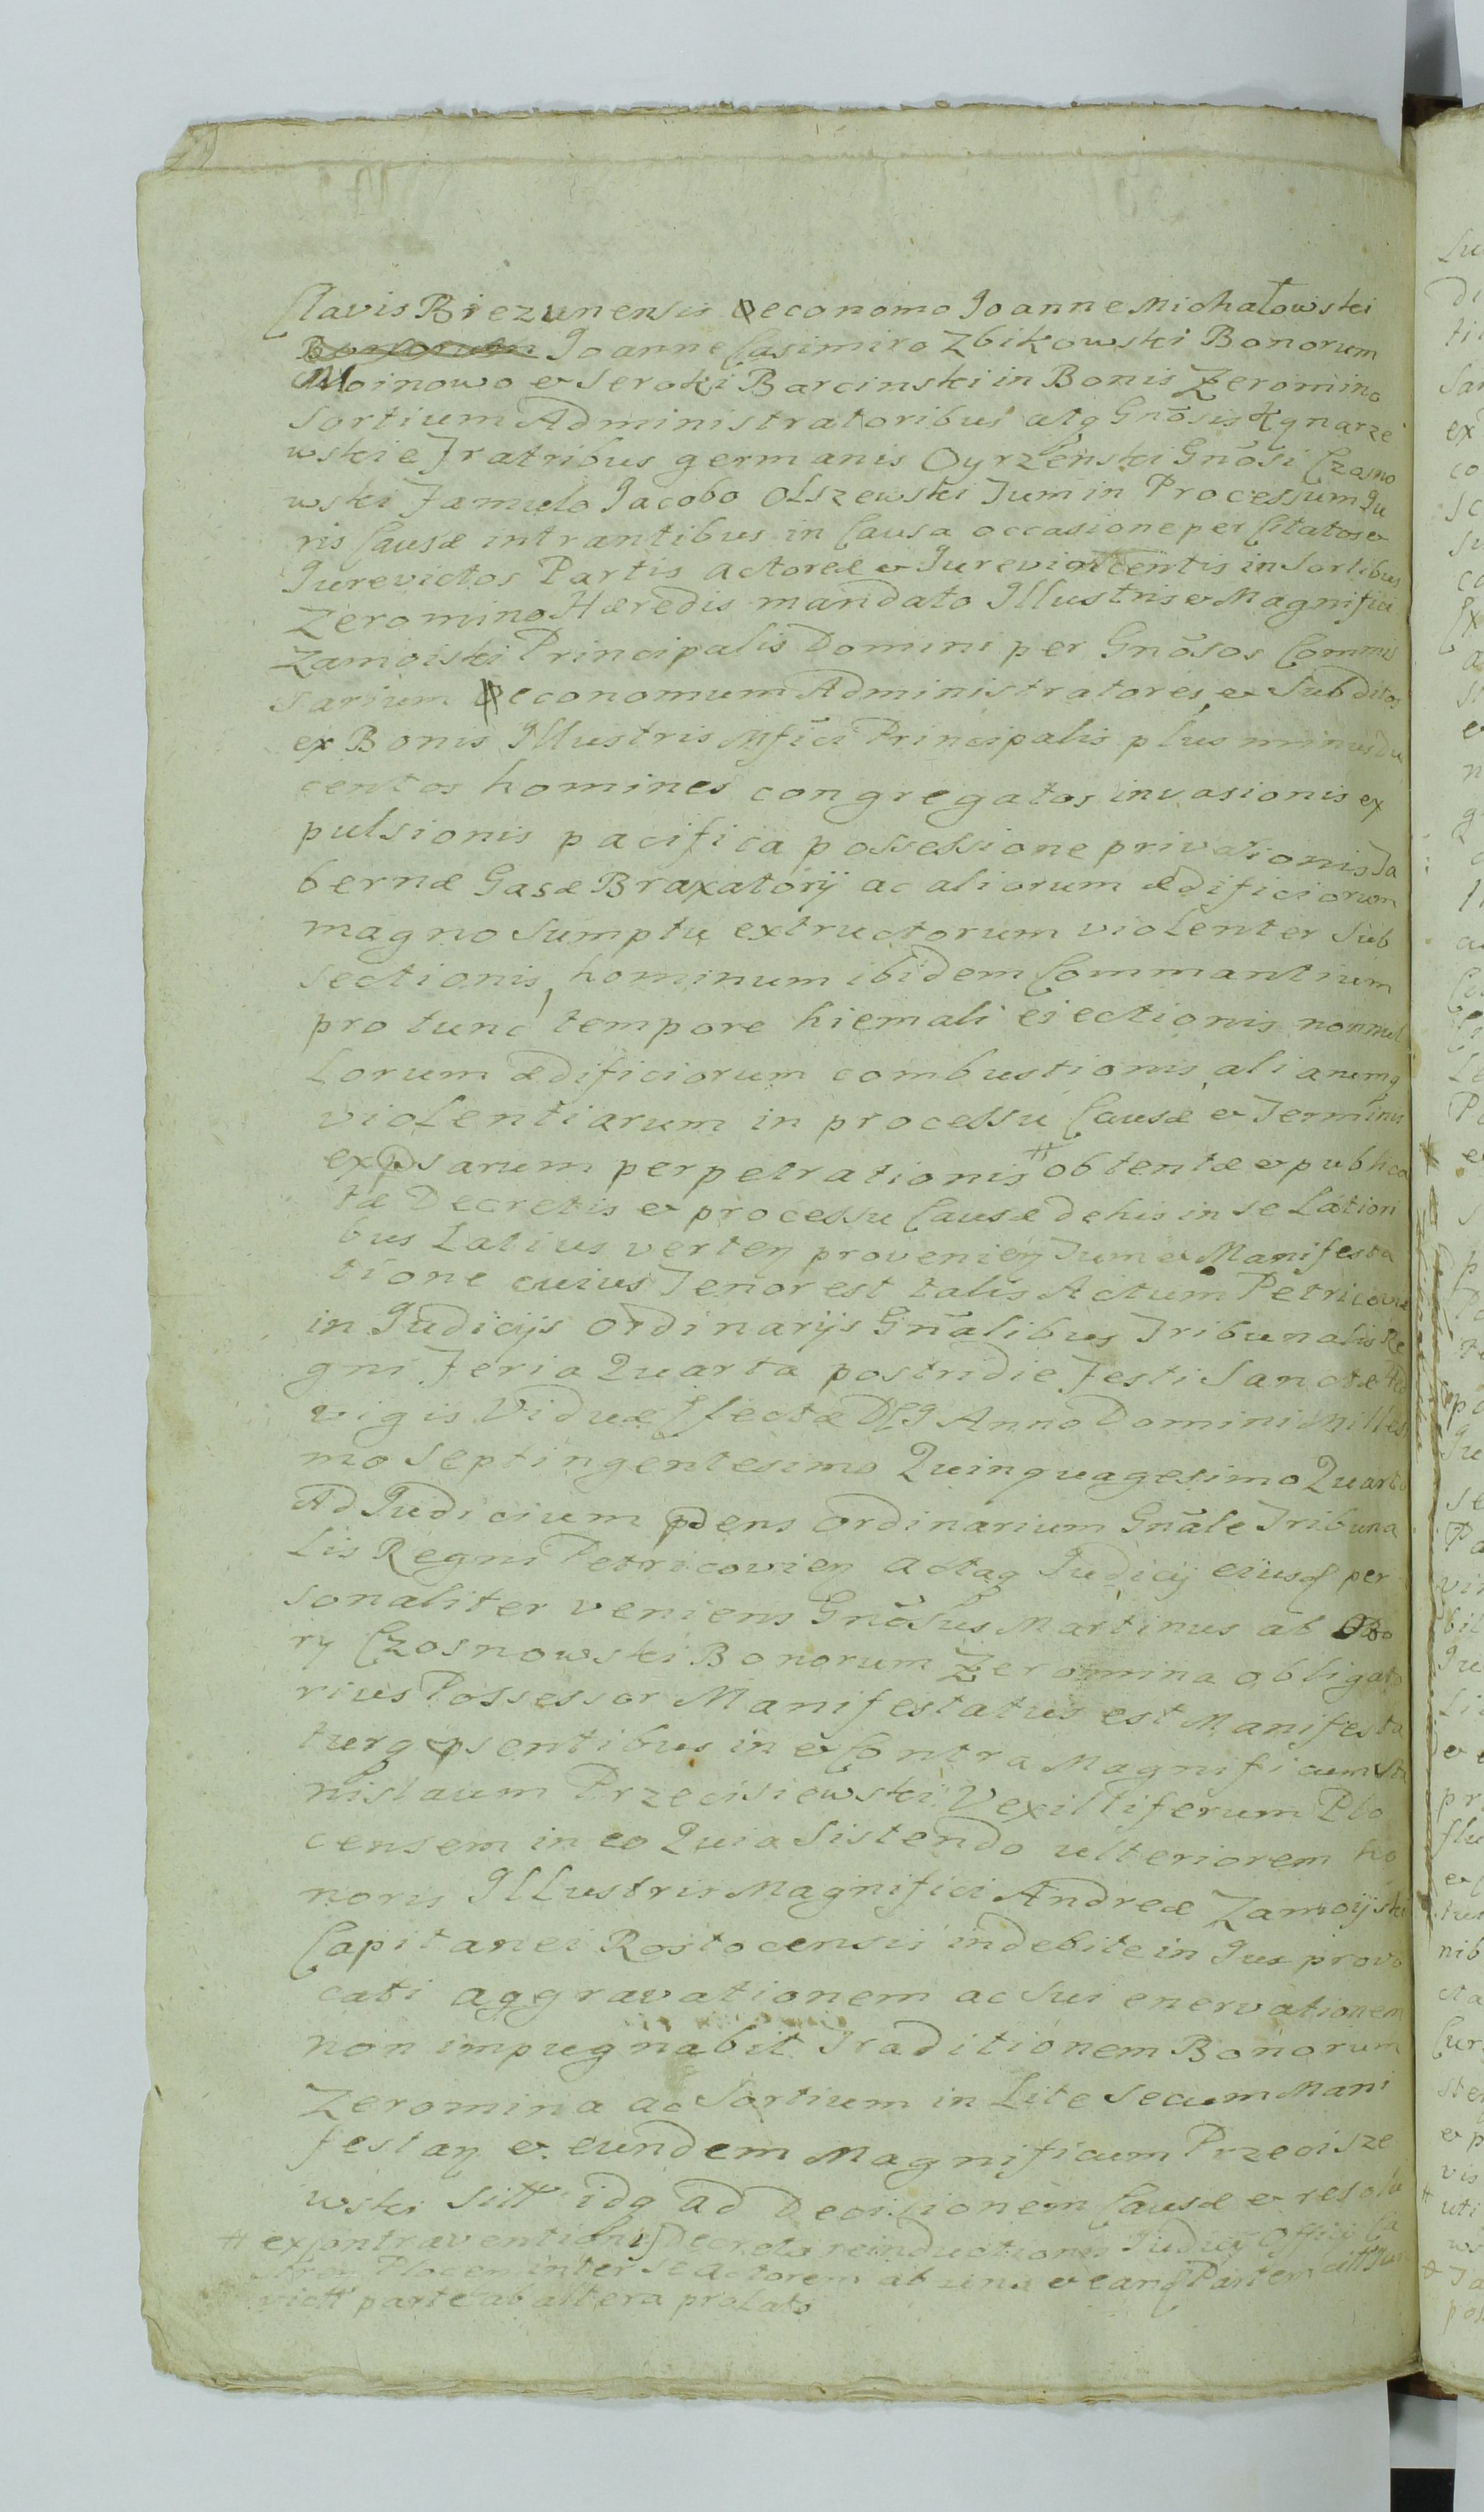 Clavis Biezunensis Oeconomo Joanne Michałowski
Joanne Casimiro Zbikowski Bonorum
Moinowo & Seroki Barcinski in Bonis Zeromino
Sortium Administratoribus atq Gnōsis Kęnarze
wskie Fratribus germanis Oyrzenski Gnōsi Czosno
wski Famulo Jacobo Olszewski Tum in Processum Ju
ris Causæ intrantibus in Causa occasione per Citatos &
Jurevictos Partis Actoreæ & Jurevincentis in Sortibus
Zeromino Hæredis mandato Illustris & Magnifici
Zamoiski Principalis Domini per Gnōsos Commis
sarium Oeconomum Administratores & Subditos
ex Bonis Illustris Mfici Principalis plus minus du
centos homines congregatos invasionis ex
pulsionis pacifica possessione privationis Ta
bernæ Casæ Braxatorij ac aliorum ædificiorum
magno Sumptu extructorum violenter Sub
sectionis hominum ibidem Commantium
pro tunc tempore hiemali eiectionis nonnul
lorum ædificiorum combustionis alianumq
violentiarum in processu Causæ & Terminis
expsarum perpetrationis # obtentæ & publica
tæ Decretis & processu Causæ de his in se Lation
bus Latius verteñ provenieñ Tum & Manifesta
tione cuius Tenor est talis Actum Petricoviæ
in Judicijs Ordinarijs Gnālibus Tribunalis Re
gni Feria Quarta postridie Festi Sanctæ Hed
vigis Viduæ Electæ Anno Domini Milles
mo Septingentesimo Quinquagesimo Quarto
Ad Judicium pdens Ordinarium Gnāle Tribuna
lis Regni Petricovieñ Actaq Judicij eiusd per
sonaliter veniens Gnōsus Martinus ab Obo
ry Czosnowski Bonorum Zeromina obligato
rius Possessor Manifestatus est Manifesta
turq psentibus in & Contra Magnificum Sta
nislaum Przecisiewski Vexilliferum Plo
censem in eo Quia Sistendo ulteriorem ho
noris Illustris Magnifici Andreæ Zamoijski
Capitanei Rostocensis indebite in Jus provo
cati aggravationem ac Sui enervationem
non impugnabit Traditionem Bonorum
Zeromina ac Sortium in Lite Secum Mani
festañ & eundem Magnificum Przecisze
wski Sitt idq ad Decisionem Causæ & resolu
# ex Contraventionis Decreto reinductionis Judicij Officij Ca
Plocen inter se Actorem ab una & eand Partem citt Jure
victt parte ab altera prolato